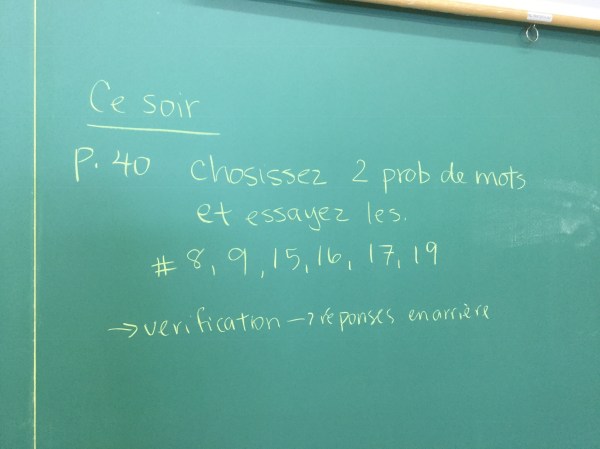 Ce soir
p. 40 chosissez 2 prob de mots
et essayez les.
# 8, 9, 15, 16, 17, 19
→ verification → réponses en arrière